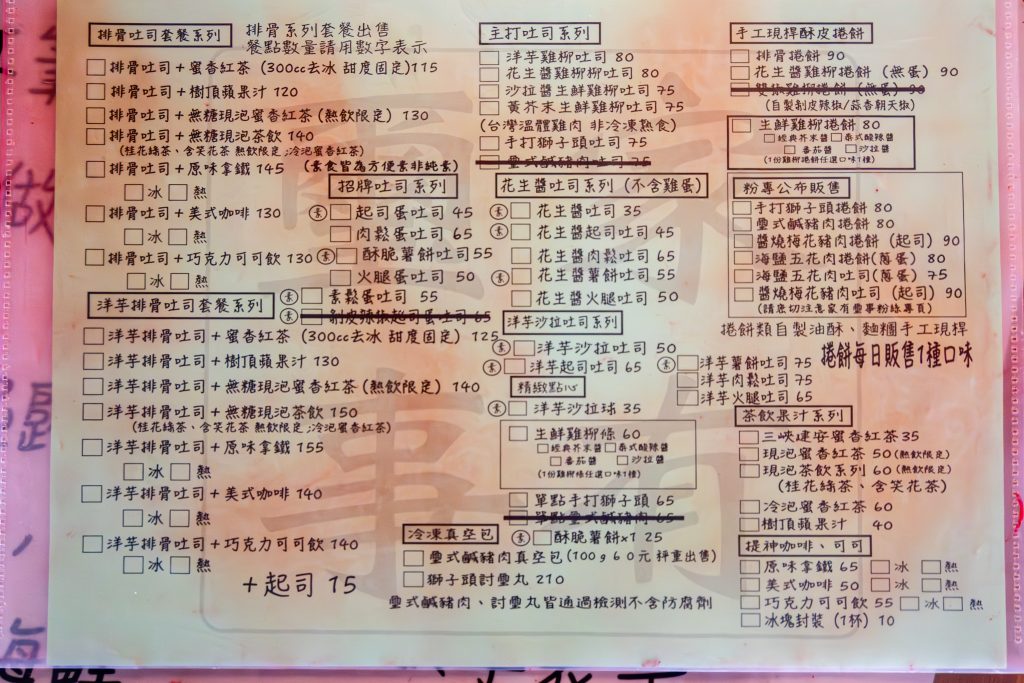 排骨吐司套餐系列
排骨系列套餐出售
餐點數量請用數字表示
排骨吐司+蜜香紅茶 (300cc去冰 甜度固定)115
排骨吐司+樹頂蘋果汁 120
排骨吐司+無糖現泡蜜香紅茶 (熱飲限定) 130
排骨吐司+無糖現泡茶飲 140
(桂花綠茶、含笑花茶 熱飲限定 ;冷泡蜜香紅茶)
排骨吐司+原味拿鐵 145
(素食皆為方便素非純素)
冰 熱
排骨吐司+美式咖啡 130
冰 熱
排骨吐司+巧克力可可飲 130
冰 熱
洋芋排骨吐司套餐系列
洋芋排骨吐司+蜜香紅茶 (300cc去冰 甜度固定) 125
洋芋排骨吐司+樹頂蘋果汁 130
洋芋排骨吐司+無糖現泡蜜香紅茶 (熱飲限定) 140
洋芋排骨吐司+無糖現泡茶飲 150
(桂花綠茶、含笑花茶 熱飲限定 ;冷泡蜜香紅茶)
洋芋排骨吐司+原味拿鐵 155
冰 熱
洋芋排骨吐司+美式咖啡 140
冰 熱
洋芋排骨吐司+巧克力可可飲 140
冰 熱
+起司 15
招牌吐司系列
素 起司蛋吐司 45
肉鬆蛋吐司 65
素 酥脆薯餅吐司 55
火腿蛋吐司 50
素 素鬆蛋吐司 55
素 剝皮辣椒起司蛋吐司 65
主打吐司系列
洋芋雞柳吐司 80
花生醬雞柳吐司 80
沙拉醬生鮮雞柳吐司 75
黃芥末生鮮雞柳吐司 75
(台灣溫體雞肉 非冷凍熟食)
手打獅子頭吐司 75
壘式鹹豬肉吐司 75
花生醬吐司系列 (不含雞蛋)
素 花生醬吐司 35
素 花生醬起司吐司 45
花生醬肉鬆吐司 65
素 花生醬薯餅吐司 55
花生醬火腿吐司 50
洋芋沙拉吐司系列
素 洋芋沙拉吐司 50
素 洋芋起司吐司 65
素 洋芋薯餅吐司 75
洋芋肉鬆吐司 75
洋芋火腿吐司 65
精緻點心
素 洋芋沙拉球 35
生鮮雞柳條 60
經典芥末醬 泰式酸辣醬
番茄醬 沙拉醬
(1份雞柳條任選口味1種)
單點手打獅子頭 65
單點壘式鹹豬肉 65
素 酥脆薯餅x1 25
冷凍真空包
壘式鹹豬肉真空包(100g 60元 秤重出售)
獅子頭討壘丸 210
壘式鹹豬肉、討壘丸皆通過檢測不含防腐劑
手工現桿酥皮捲餅
排骨捲餅 90
花生醬雞柳捲餅 (無蛋) 90
雙椒雞柳捲餅 (無蛋) 90
(自製剝皮辣椒/蒜香朝天椒)
生鮮雞柳捲餅 80
經典芥末醬 泰式酸辣醬
番茄醬 沙拉醬
(1份雞柳捲餅任選口味1種)
粉專公布販售
手打獅子頭捲餅 80
壘式鹹豬肉捲餅 80
醬燒梅花豬肉捲餅 (起司) 90
海鹽五花肉捲餅 (蔥蛋) 80
海鹽五花肉吐司 (蔥蛋) 75
醬燒梅花豬肉吐司 (起司) 90
(請密切注意家有壘事粉絲專頁)
捲餅類自製油酥、麵糰手工現桿
捲餅每日販售1種口味
茶飲果汁系列
三峽建安蜜香紅茶 35
現泡蜜香紅茶 50 (熱飲限定)
現泡茶飲系列 60 (熱飲限定)
(桂花綠茶、含笑花茶)
冷泡蜜香紅茶 60
樹頂蘋果汁 40
提神咖啡、可可
原味拿鐵 65 冰 熱
美式咖啡 50 冰 熱
巧克力可可飲 55 冰 熱
冰塊封裝 (1杯) 10
家有
壘事